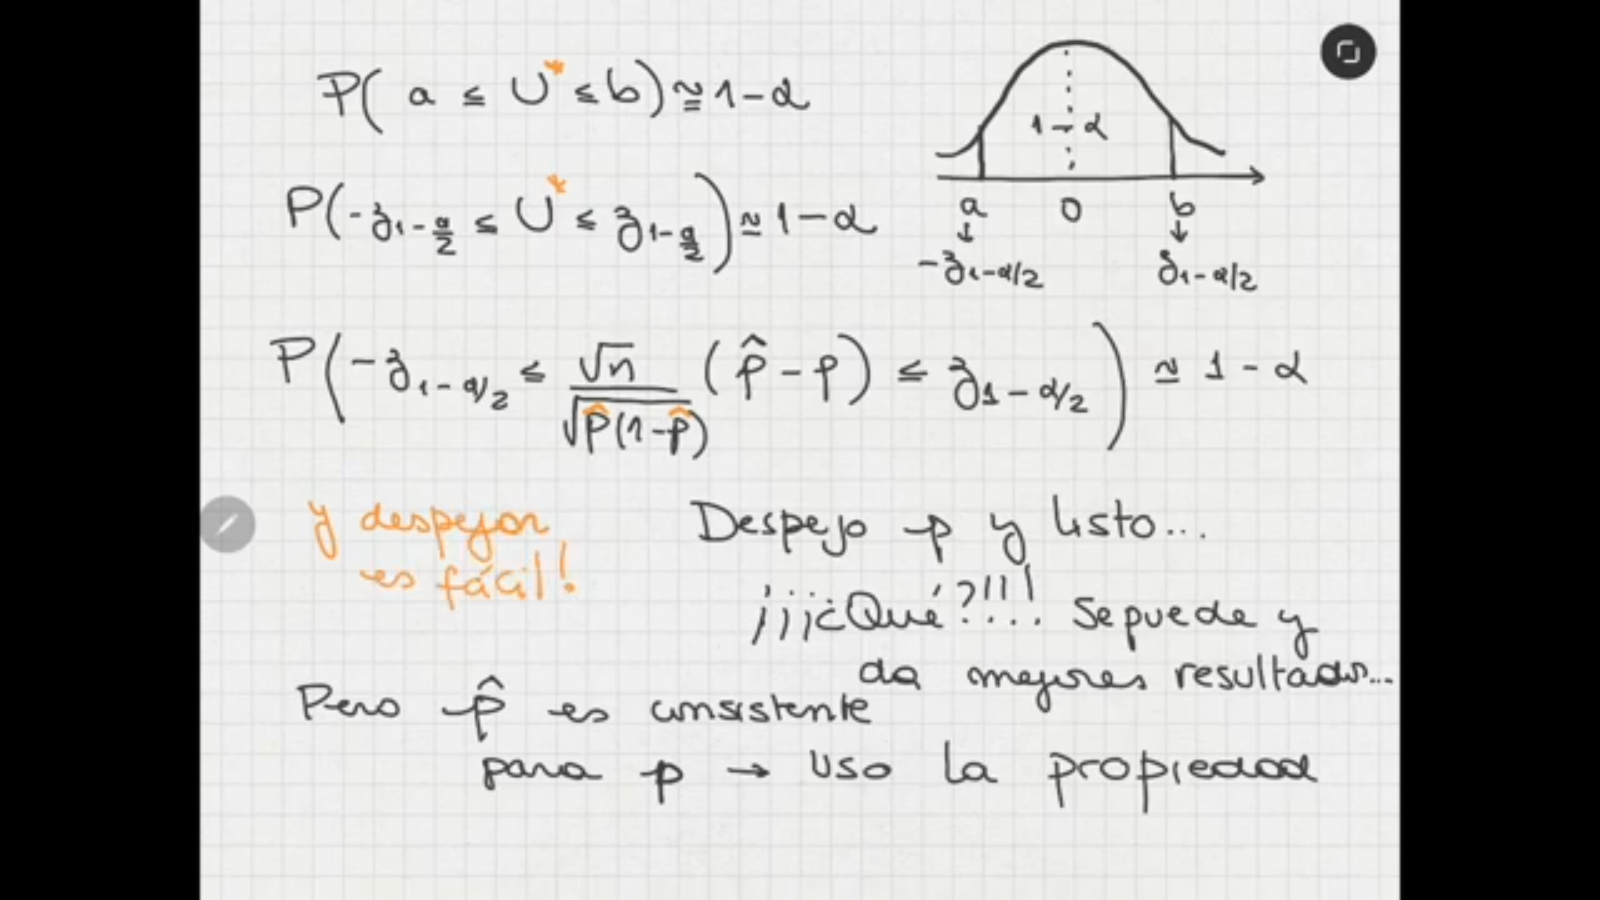 P( a ≤ U* ≤ b) ≅ 1-α
1-α
a 0 b
↓ ↓
-z₁₋α/₂ z₁₋α/₂
P(-z₁₋α/₂ ≤ U* ≤ z₁₋α/₂) ≅ 1-α
P(-z₁₋α/₂ ≤ √n/√p̂(1-p̂) (p̂-p) ≤ z₁₋α/₂) ≅ 1-α
y despejar
es fácil!
Despejo p y listo...
¡¡¡¿Qué?!!! Se puede y
da mejores resultados...
Pero p̂ es consistente
para p → Uso la propiedad